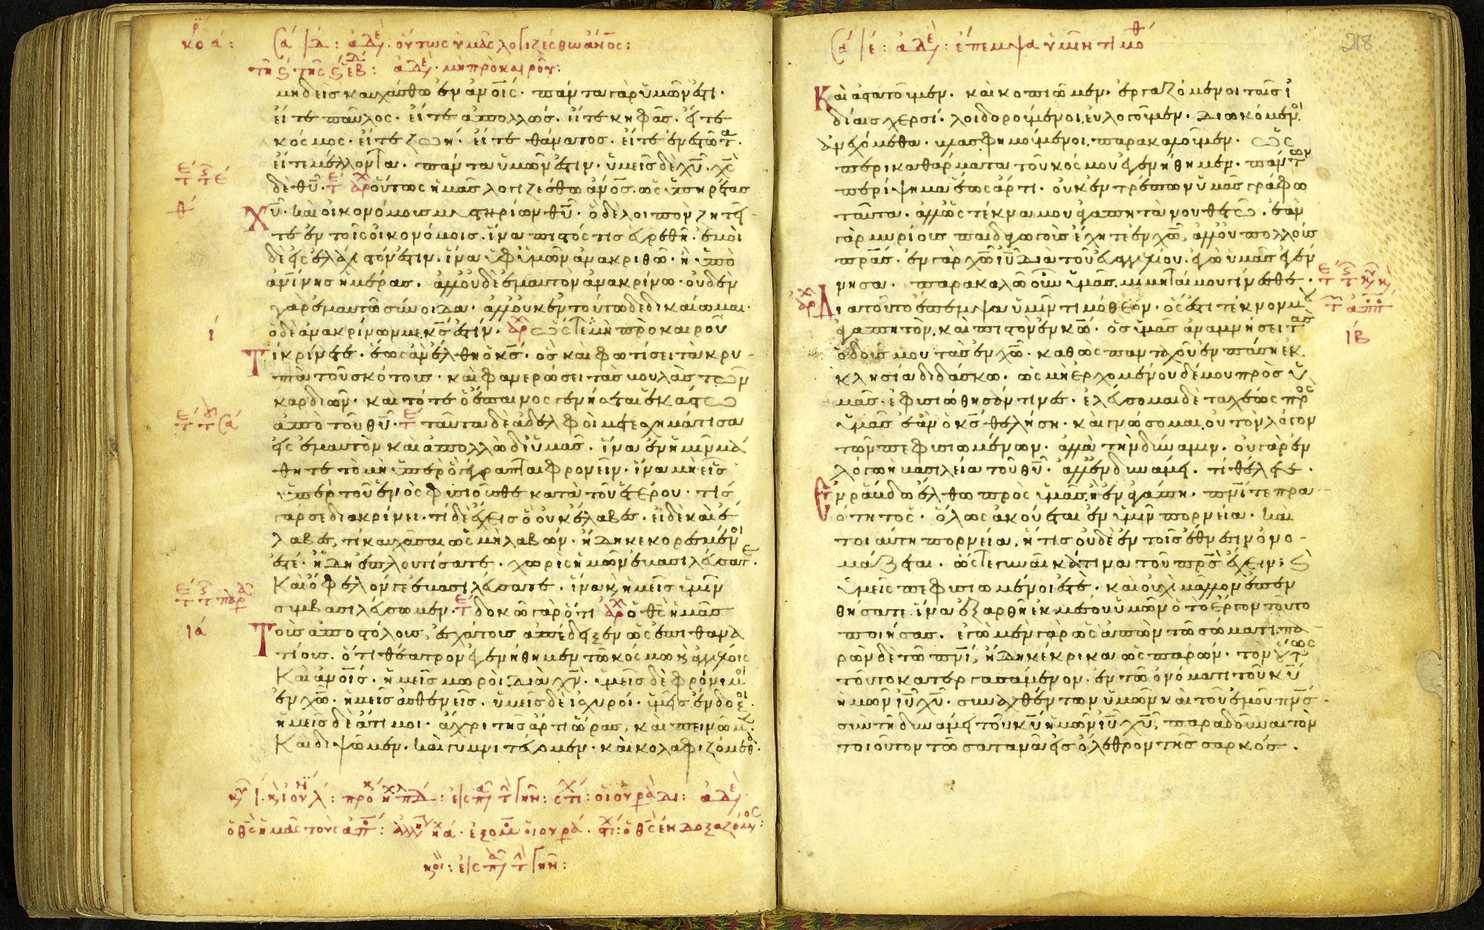 οὕτως ὑμᾶς λογιζέσθω ἄνος:
μὴ προκαιροῦ:
μηδεὶς καυχάσθω ἐν ἀνοις· πάντα γὰρ ὑμῶν ἐστι·
εἴτε παῦλος· εἴτε ἀπολλώς· εἴτε κηφᾶς· εἴτε
κόσμος· εἴτε ζωή· εἴτε θάνατος· εἴτε ἐνεστῶτα·
εἴτε μέλλοντα· πάντα ὑμῶν ἐστιν· ὑμεῖς δὲ χυ· χς
δὲ θυ· οὕτως ἡμᾶς λογιζέσθω ἄνος· ὡς ὑπηρέτας
χυ· καὶ οἰκονόμους μυστηρίων θυ· ὃ δὲ λοιπὸν ζητεῖ
τε ἐν τοῖς οἰκονόμοις· ἵνα πιστός τις εὑρεθῆ· ἐμοὶ
δὲ εἰς ἐλάχιστόν ἐστιν· ἵνα ὑφ' ὑμῶν ἀνακριθῶ· ἢ ὑπὸ
ἀνίνης ἡμέρας· ἀλλ' οὐδὲ ἐμαυτὸν ἀνακρίνω· οὐδὲν
γὰρ ἐμαυτῶ σύνοιδα· ἀλλ' οὐκ ἐν τούτω δεδικαίωμαι·
ὁ δὲ ἀνακρίνων με κς ἐστιν· ὥστε μὴ προκαιροῦ
τι κρίνετε· ἕως ἂν ἔλθη ὁ κς· ὃς καὶ φωτίσει τὰ κρυ
πτὰ τοῦ σκότους· καὶ φανερώσει τὰς βουλὰς τῶν
καρδιῶν· καὶ τότε ὁ ἔπαινος γενήσεται ἑκάστω
ἀπὸ τοῦ θυ· ταῦτα δὲ ἀδελφοὶ μετεσχημάτισα
εἰς ἐμαυτὸν καὶ ἀπολλὼ δι' ὑμᾶς· ἵνα ἐν ἡμῖν μά
θητε τὸ μὴ ὑπὲρ ὃ γέγραπται φρονεῖν· ἵνα μὴ εἷς
ὑπὲρ τοῦ ἑνὸς φυσιοῦσθε κατὰ τοῦ ἑτέρου· τίς
γάρ σε διακρίνει· τί δὲ ἔχεις ὃ οὐκ ἔλαβες· εἰ δὲ καὶ ἔ
λαβες, τί καυχᾶσαι ὡς μὴ λαβών· ἤδη κεκορεσμένοι
ἐστέ· ἤδη ἐπλουτίσατε· χωρὶς ἡμῶν ἐβασιλεύσατε·
Καὶ ὄφελόν γε ἐβασιλεύσατε· ἵνα καὶ ἡμεῖς ὑμῖν
συμβασιλεύσωμεν· δοκῶ γὰρ ὅτι ὁ θς ἡμᾶς
Τοὺς ἀποστόλους, ἐσχάτους ἀπέδειξεν ὡς ἐπιθανα
τίους· ὅτι θέατρον ἐγενήθημεν τῶ κόσμω καὶ ἀγγέλοις
Καὶ ἀνοις· ἡμεῖς μωροὶ δια χν· ὑμεῖς δὲ φρόνιμοι
ἐν χω· ἡμεῖς ἀσθενεῖς· ὑμεῖς δὲ ἰσχυροί· ὑμεῖς ἔνδοξοι·
ἡμεῖς δὲ ἄτιμοι· ἄχρι τῆς ἄρτι ὥρας, καὶ πεινῶμεν·
Καὶ διψῶμεν· καὶ γυμνιτεύομεν· καὶ κολαφιζόμεθα·
ἔπεμψα ὑμῖν τιμοθ
Καὶ ἀστατοῦμεν· καὶ κοπιῶμεν· ἐργαζόμενοι ταῖς ἰ
δίαις χερσί· λοιδορούμενοι, εὐλογοῦμεν· διωκόμενοι
ἀνεχόμεθα· βλασφημούμενοι, παρακαλοῦμεν· ὡς
περικαθάρματα τοῦ κόσμου ἐγενήθημεν· πάντων
περίψημα ἕως ἄρτι· οὐκ ἐντρέπων ὑμᾶς γράφω
ταῦτα· ἀλλ' ὡς τέκνα μου ἀγαπητὰ νουθετῶ· ἐὰν
γὰρ μυρίους παιδαγωγοὺς ἔχητε ἐν χω, ἀλλ' οὐ πολλοὺς
πρας· ἐν γὰρ χω ιυ δια τοῦ εὐαγγελίου ἐγὼ ὑμᾶς ἐγέν
νησα· παρακαλῶ οὖν ὑμᾶς· μιμηταί μου γίνεσθε·
Διατοῦτο ἔπεμψα ὑμῖν τιμόθεον· ὅς ἐστι τέκνον μου
ἀγαπητὸν, καὶ πιστὸν ἐν κω· ὃς ὑμᾶς ἀναμνήσει τὰς
ὁδούς μου τὰς ἐν χω· καθὼς πανταχοῦ ἐν πάση ἐκ
κλησία διδάσκω· ὡς μὴ ἐρχομένου δέ μου πρὸς ὑ
μᾶς· ἐφυσιώθησάν τινες· ἐλεύσομαι δὲ ταχέως πρὸς
ὑμᾶς ἐὰν ὁ κς θελήση· καὶ γνώσομαι, οὐ τὸν λόγον
τῶν πεφυσιωμένων· ἀλλὰ τὴν δύναμιν· οὐ γὰρ ἐν
λόγω ἡ βασιλεία τοῦ θυ· ἀλλ' ἐν δυνάμει· τί θέλετε·
Ἐν ῥάβδω ἔλθω πρὸς ὑμᾶς, ἢ ἐν ἀγάπη· πνι τε πρα
ότητος· ὅλως ἀκούεται ἐν ὑμῖν πορνεία· καὶ
τοιαύτη πορνεία, ἥτις οὐδὲ ἐν τοῖς ἔθνεσιν ὀνο
μάζεται· ὥστε γυναῖκά τινα τοῦ πρς ἔχειν· καὶ
ὑμεῖς πεφυσιωμένοι ἐστέ· καὶ οὐχὶ μᾶλλον ἐπεν
θήσατε· ἵνα ἐξαρθῆ ἐκ μέσου ὑμῶν ὁ τὸ ἔργον τοῦτο
ποιήσας· ἐγὼ μὲν γὰρ ὡς ἀπὼν τῶ σώματι, πα
ρὼν δὲ τῶ πνι, ἤδη κέκρικα ὡς παρών· τὸν οὕτως
τοῦτο κατεργασάμενον· ἐν τῶ ὀνόματι τοῦ κυ
ἡμῶν ιυ χυ· συναχθέντων ὑμῶν καὶ τοῦ ἐμοῦ πνς·
σὺν τῆ δυνάμει τοῦ κυ ἡμῶν ιυ χυ, παραδοῦναι τὸν
τοιοῦτον τῶ σατανᾶ εἰς ὄλεθρον τῆς σαρκός·
218